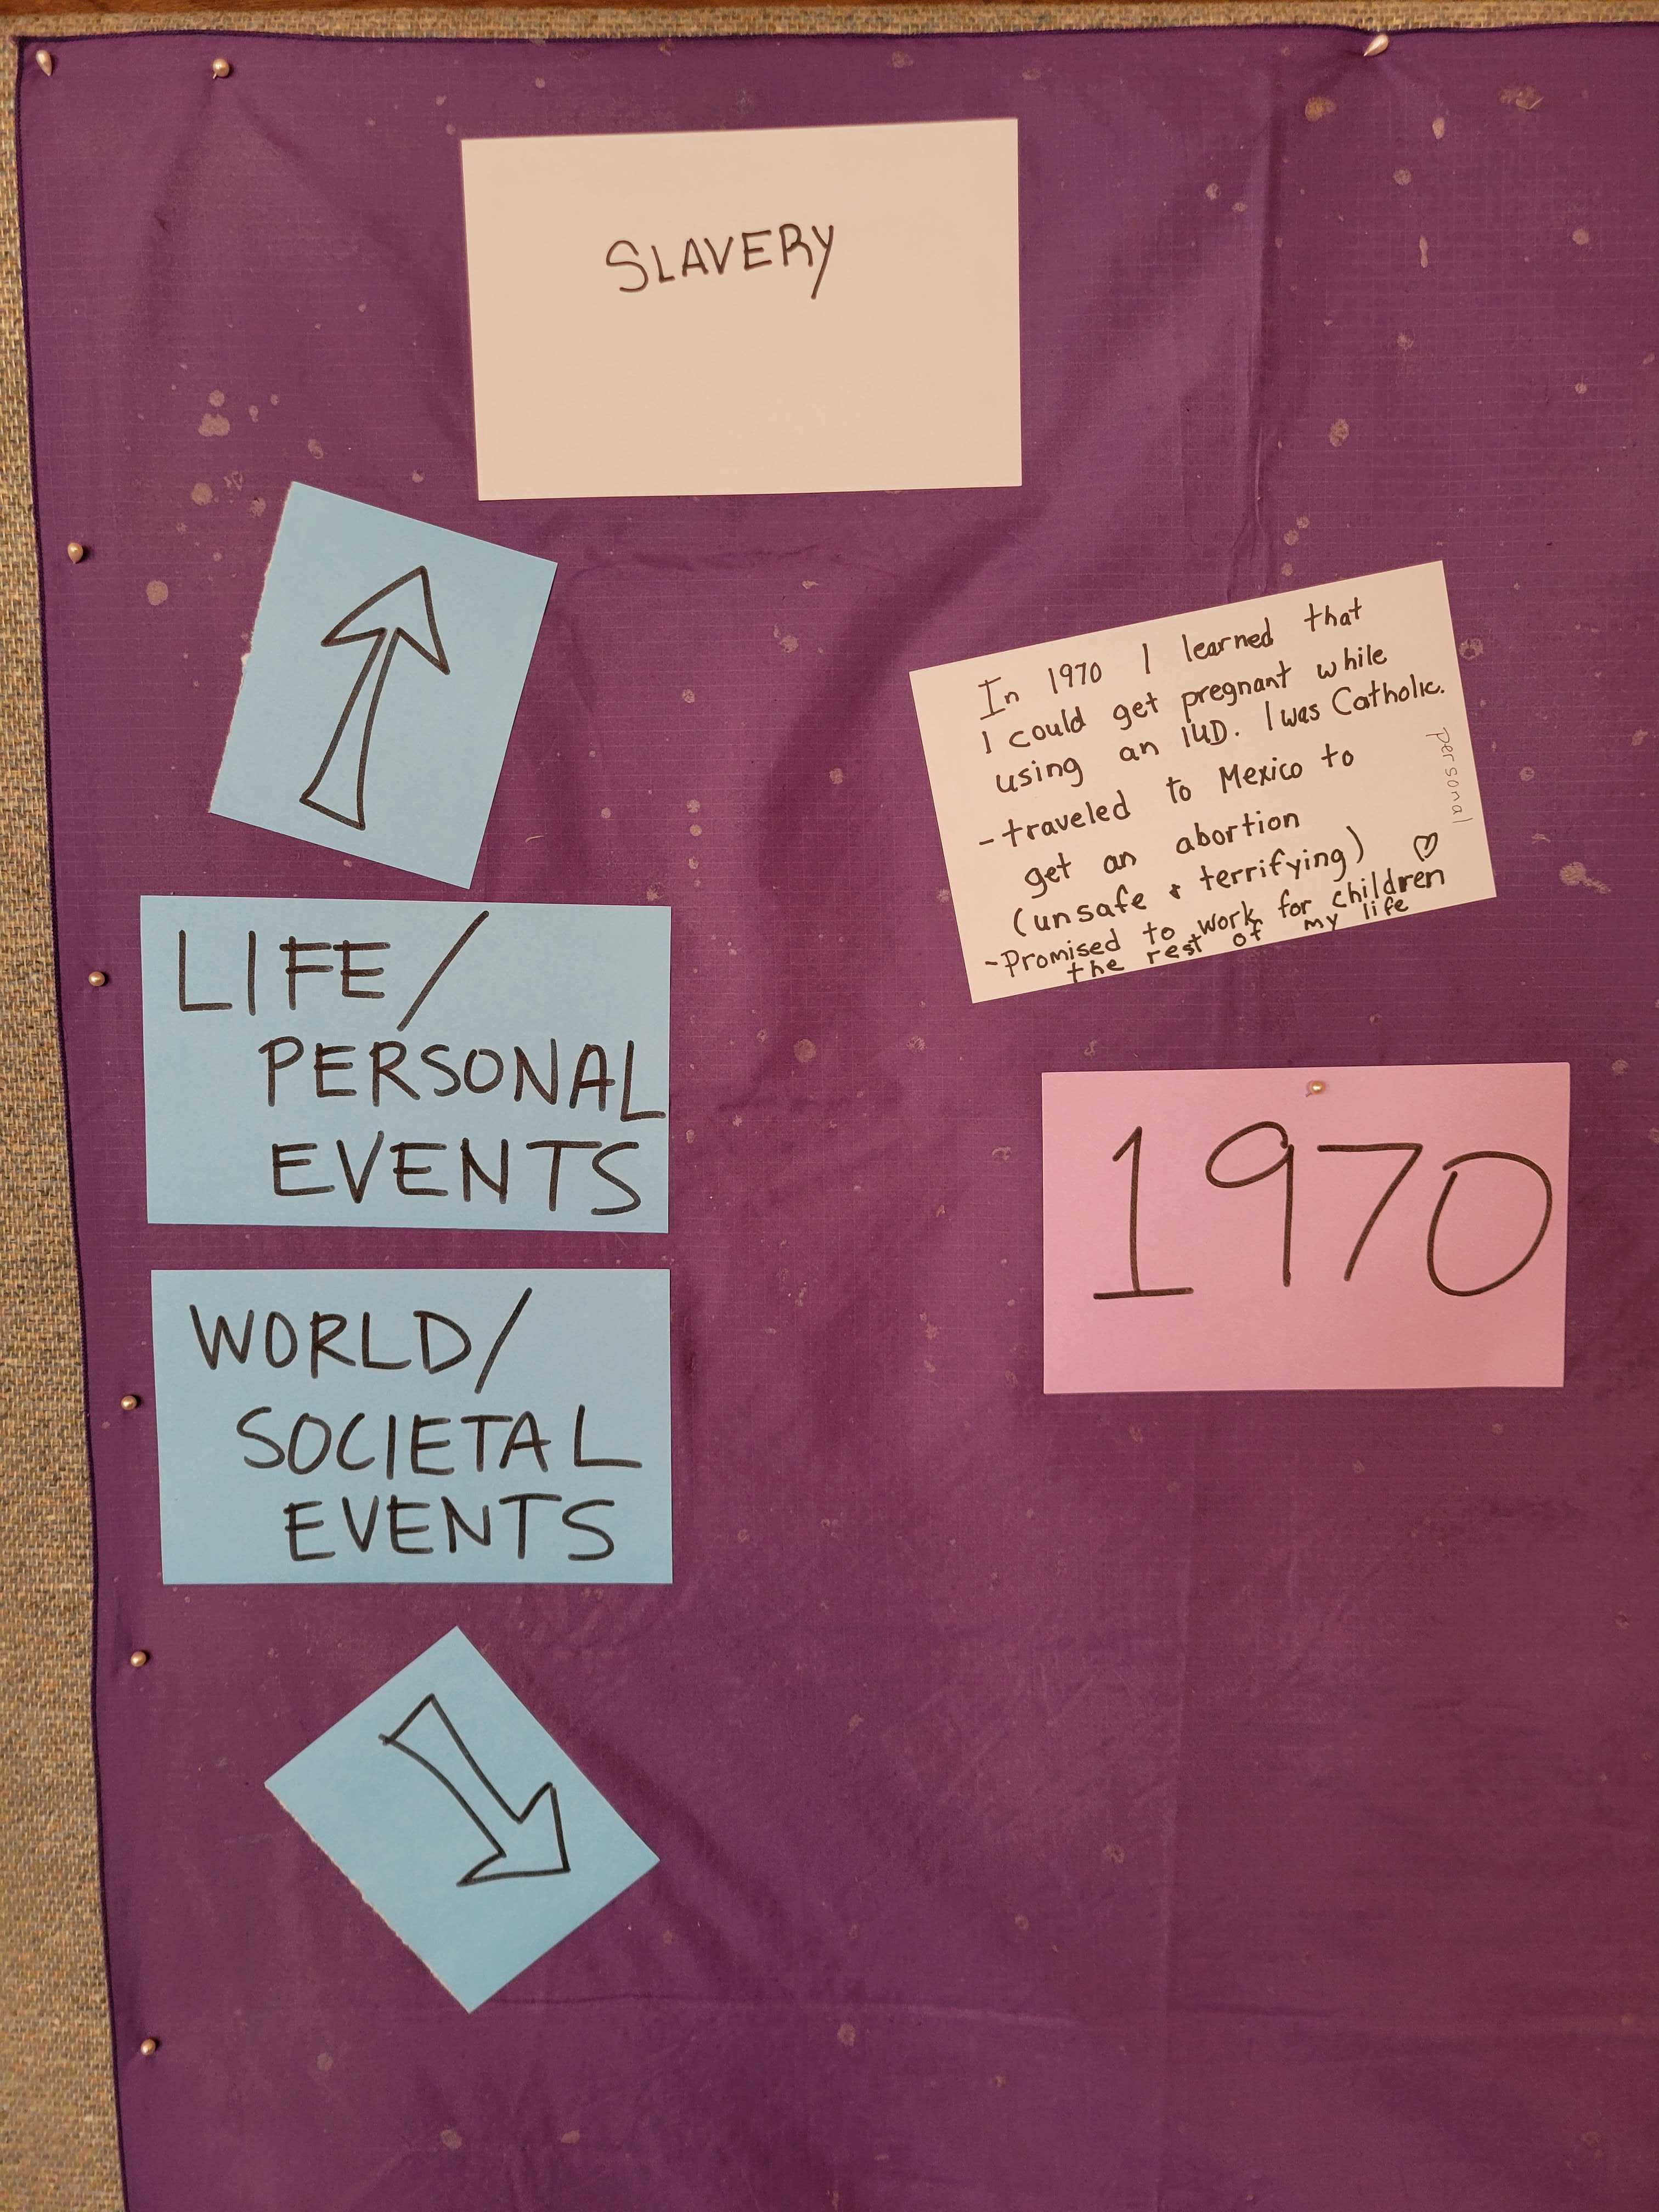 SLAVERY
In 1970 I learned that
I could get pregnant while
using an IUD. I was Catholic.
- traveled to Mexico to
get an abortion
(unsafe & terrifying) ♡
- Promised to work for children
the rest of my life
personal
LIFE/
PERSONAL
EVENTS
1970
WORLD/
SOCIETAL
EVENTS